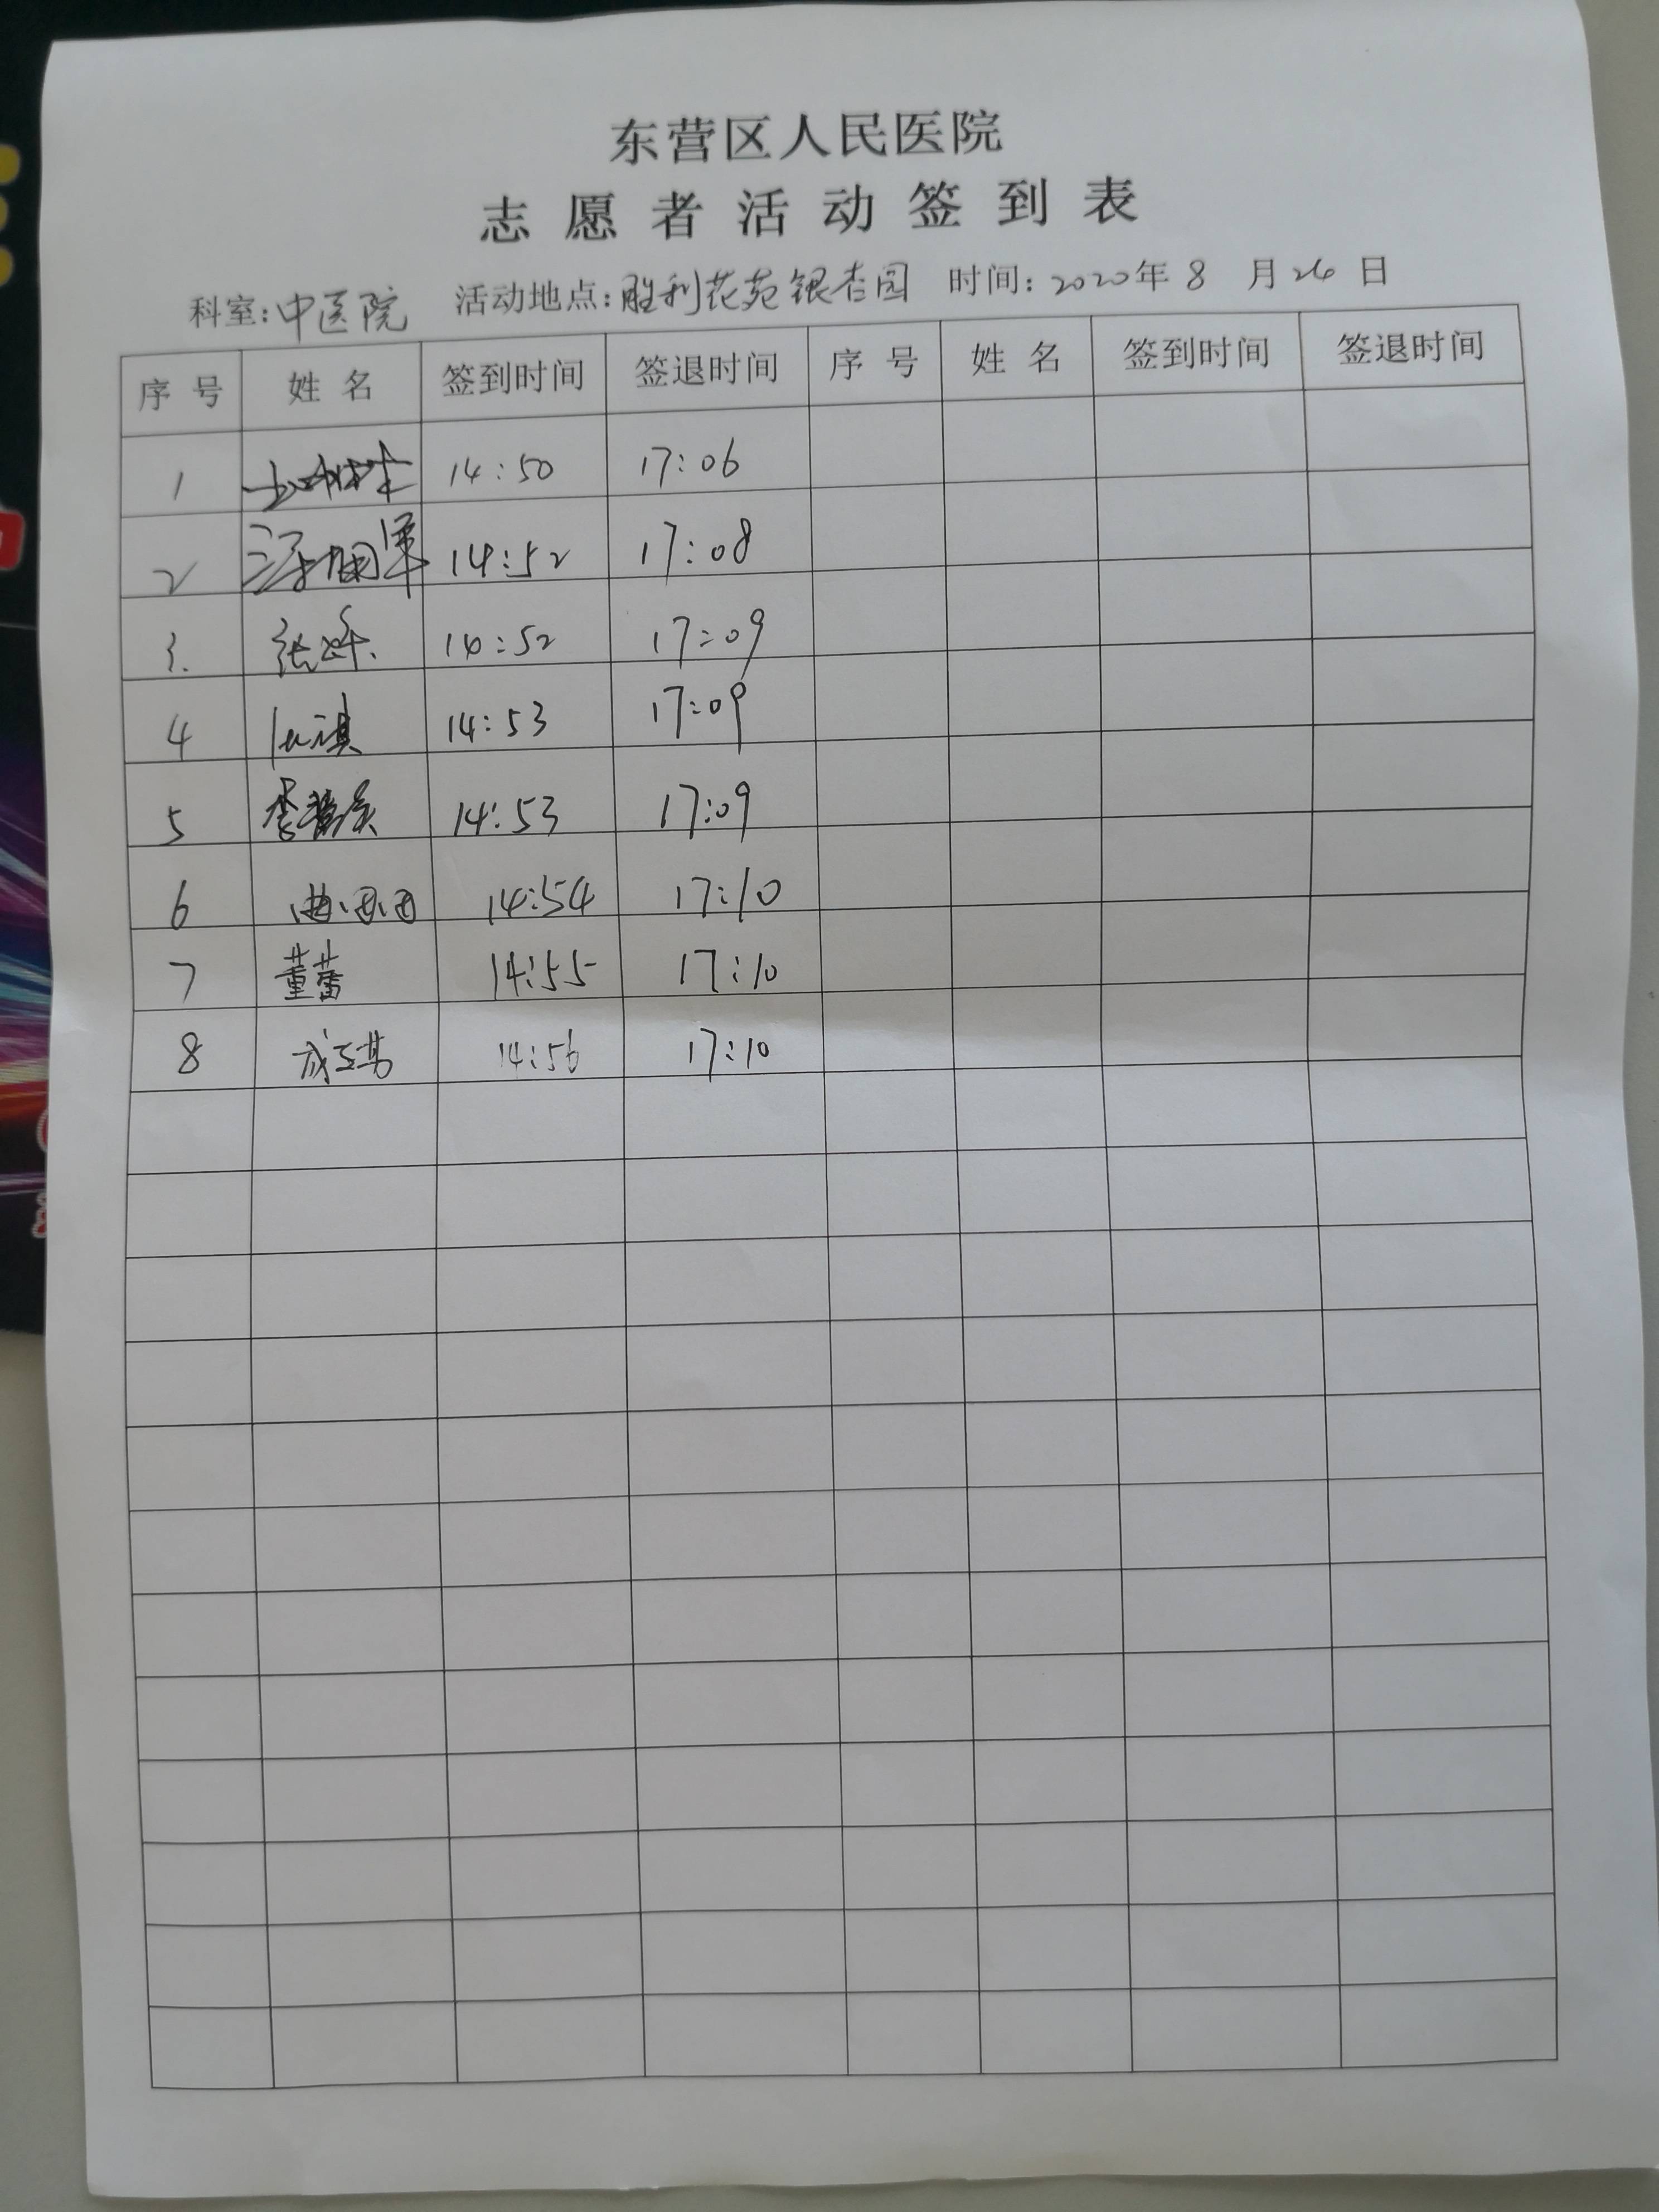 东营区人民医院
志愿者活动签到表
科室:中医院 活动地点:胜利花苑银杏园 时间:2020年8月26日
序号 姓名 签到时间 签退时间 序号 姓名 签到时间 签退时间
1 14:50 17:06
2 14:52 17:08
3. 14:52 17:09
4 14:53 17:09
5 14:53 17:09
6 曲团团 14:54 17:10
7 董蕾 14:55 17:10
8 14:56 17:10